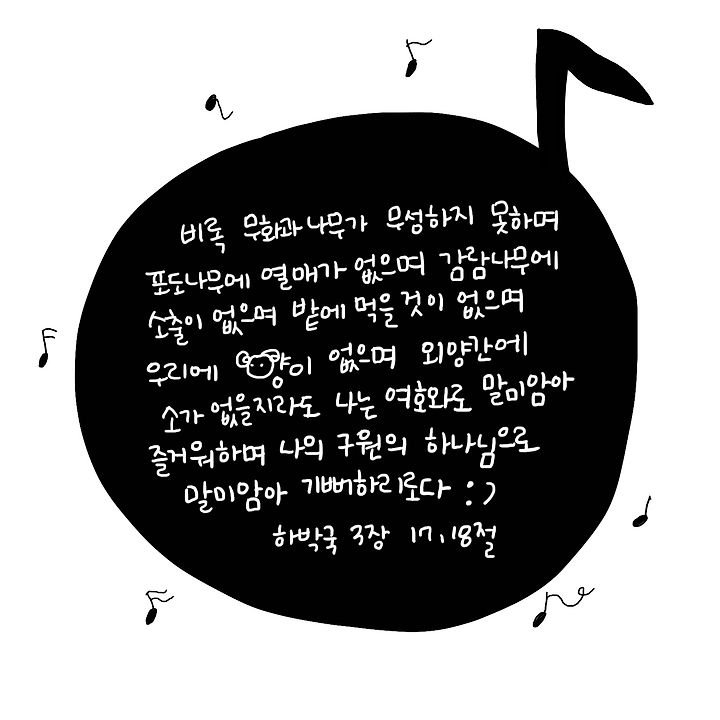 비록 무화과나무가 무성하지 못하며
포도나무에 열매가 없으며 감람나무에
소출이 없으며 밭에 먹을 것이 없으며
우리에 양이 없으며 외양간에
소가 없을지라도 나는 여호와로 말미암아
즐거워하며 나의 구원의 하나님으로
말미암아 기뻐하리로다 :)
하박국 3장 17,18절